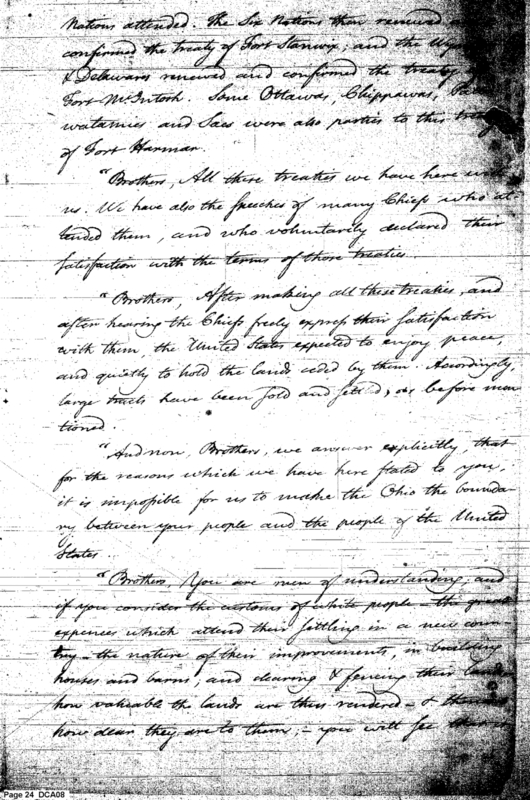 Nations attended. The Six Nations then renewed
confirmed the treaty of Fort Stanwix; and the
& Delawares renewed and confirmed the treaty
Fort McIntosh. Some Ottawas, Chippawas,
watamies and Sacs were also parties to this treaty
of Fort Harmar.
"Brothers, All these treaties we have here with
us. We have also the speeches of many Chiefs who at-
tended them, and who voluntarily declared their
satisfaction with the terms of those treaties.
"Brothers, After making all these treaties, and
after hearing the Chiefs freely express their satisfaction
with them, the United States expected to enjoy peace,
and quietly to hold the lands ceded by them. Accordingly,
large tracts have been sold and settled, as before men
tioned.
"And now, Brothers, we answer explicitly, that
for the reasons which we have here stated to you,
it is impossible for us to make the Ohio the bounda
ry between your people and the people of the United
States.
"Brothers, You are men of understanding; and
if you consider the customs of white people – the great
expences which attend their settling in a new coun-
try – the nature of their improvements, in building
houses and barns, and clearing & fencing their lands
how valuable the lands are thus rendered – &
how dear they are to them; – you will see
Page 24_DCA08